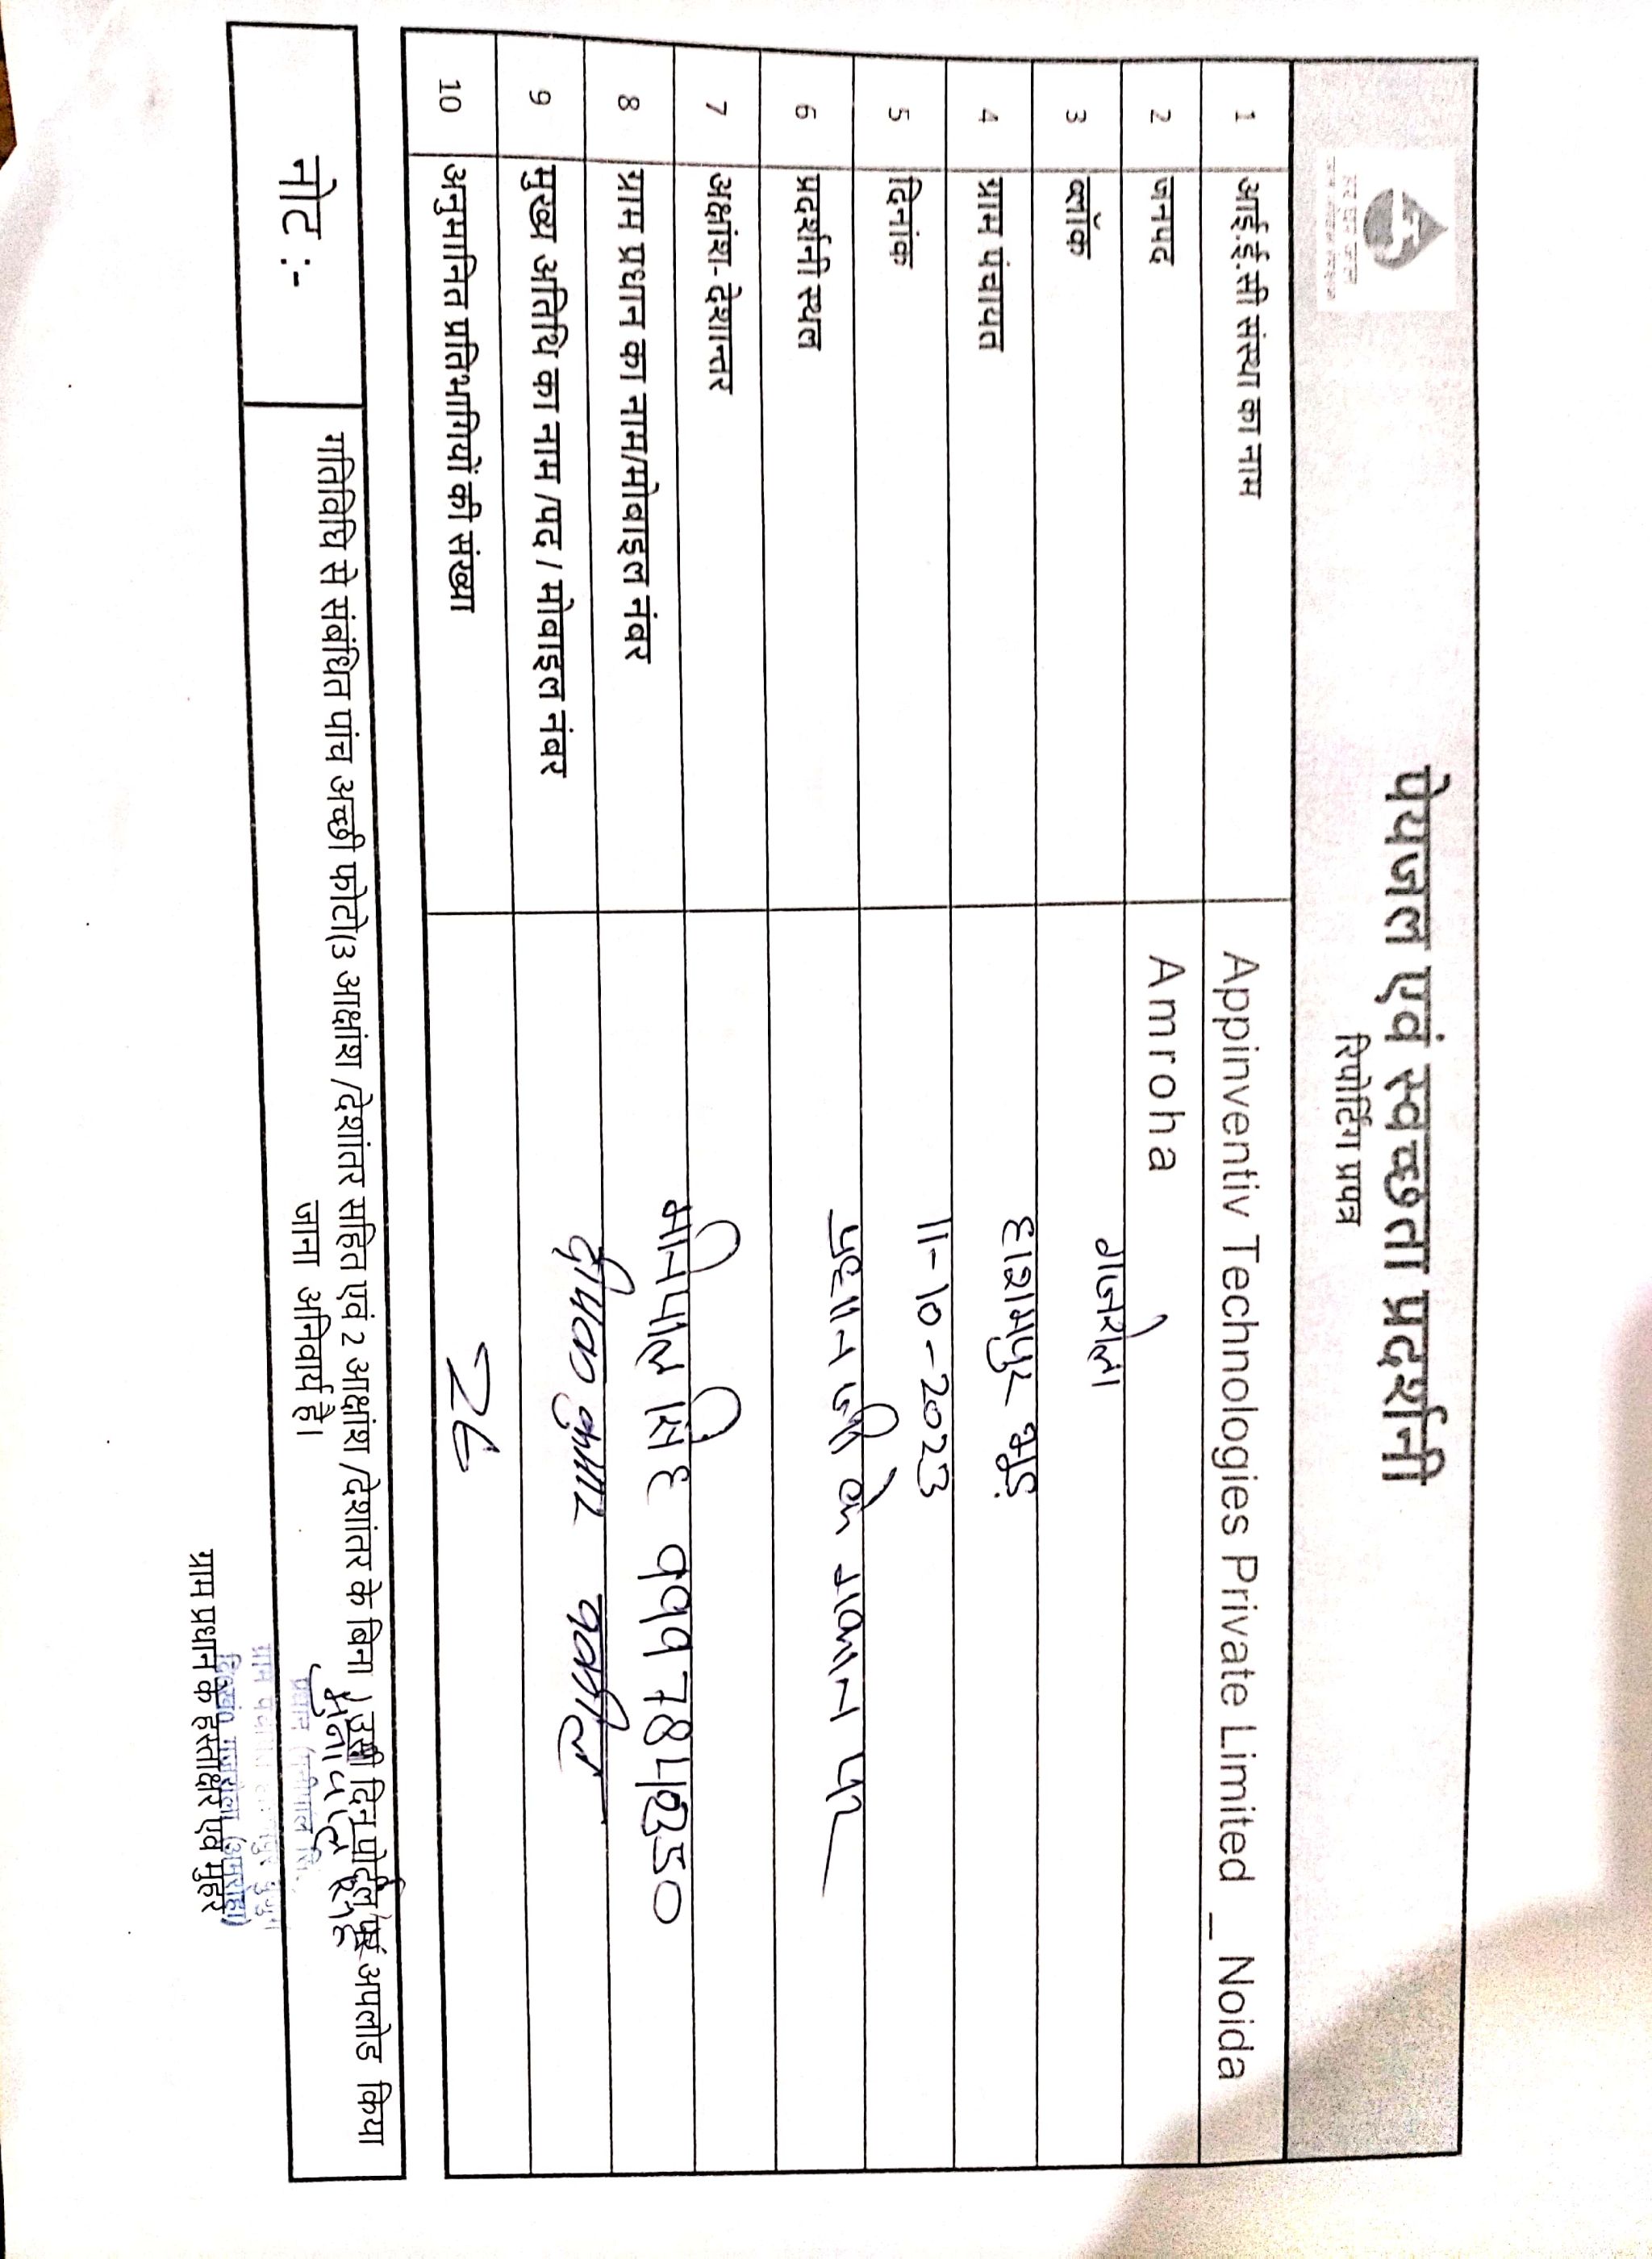 पेयजल एवं स्वच्छता प्रदर्शनी
रिपोर्टिंग प्रपत्र
1 आई.ई.सी संस्था का नाम Appinventiv Technologies Private Limited _ Noida
2 जनपद Amroha
3 ब्लॉक गजरौला
4 ग्राम पंचायत
5 दिनांक 11-10-2023
6 प्रदर्शनी स्थल प्रधान जी के मकान पर
7 अक्षांश-देशान्तर
8 ग्राम प्रधान का नाम/मोबाइल नंबर
9 मुख्य अतिथि का नाम /पद / मोबाइल नंबर दीपक कुमार
10 अनुमानित प्रतिभागियों की संख्या
नोट :-
गतिविधि से संबंधित पांच अच्छी फोटो(3 आक्षांश /देशांतर सहित एवं 2 आक्षांश /देशांतर के बिना ) उसी दिन पोर्टल पर अपलोड किया
जाना अनिवार्य है।
ग्राम प्रधान के हस्ताक्षर एवं मुहर